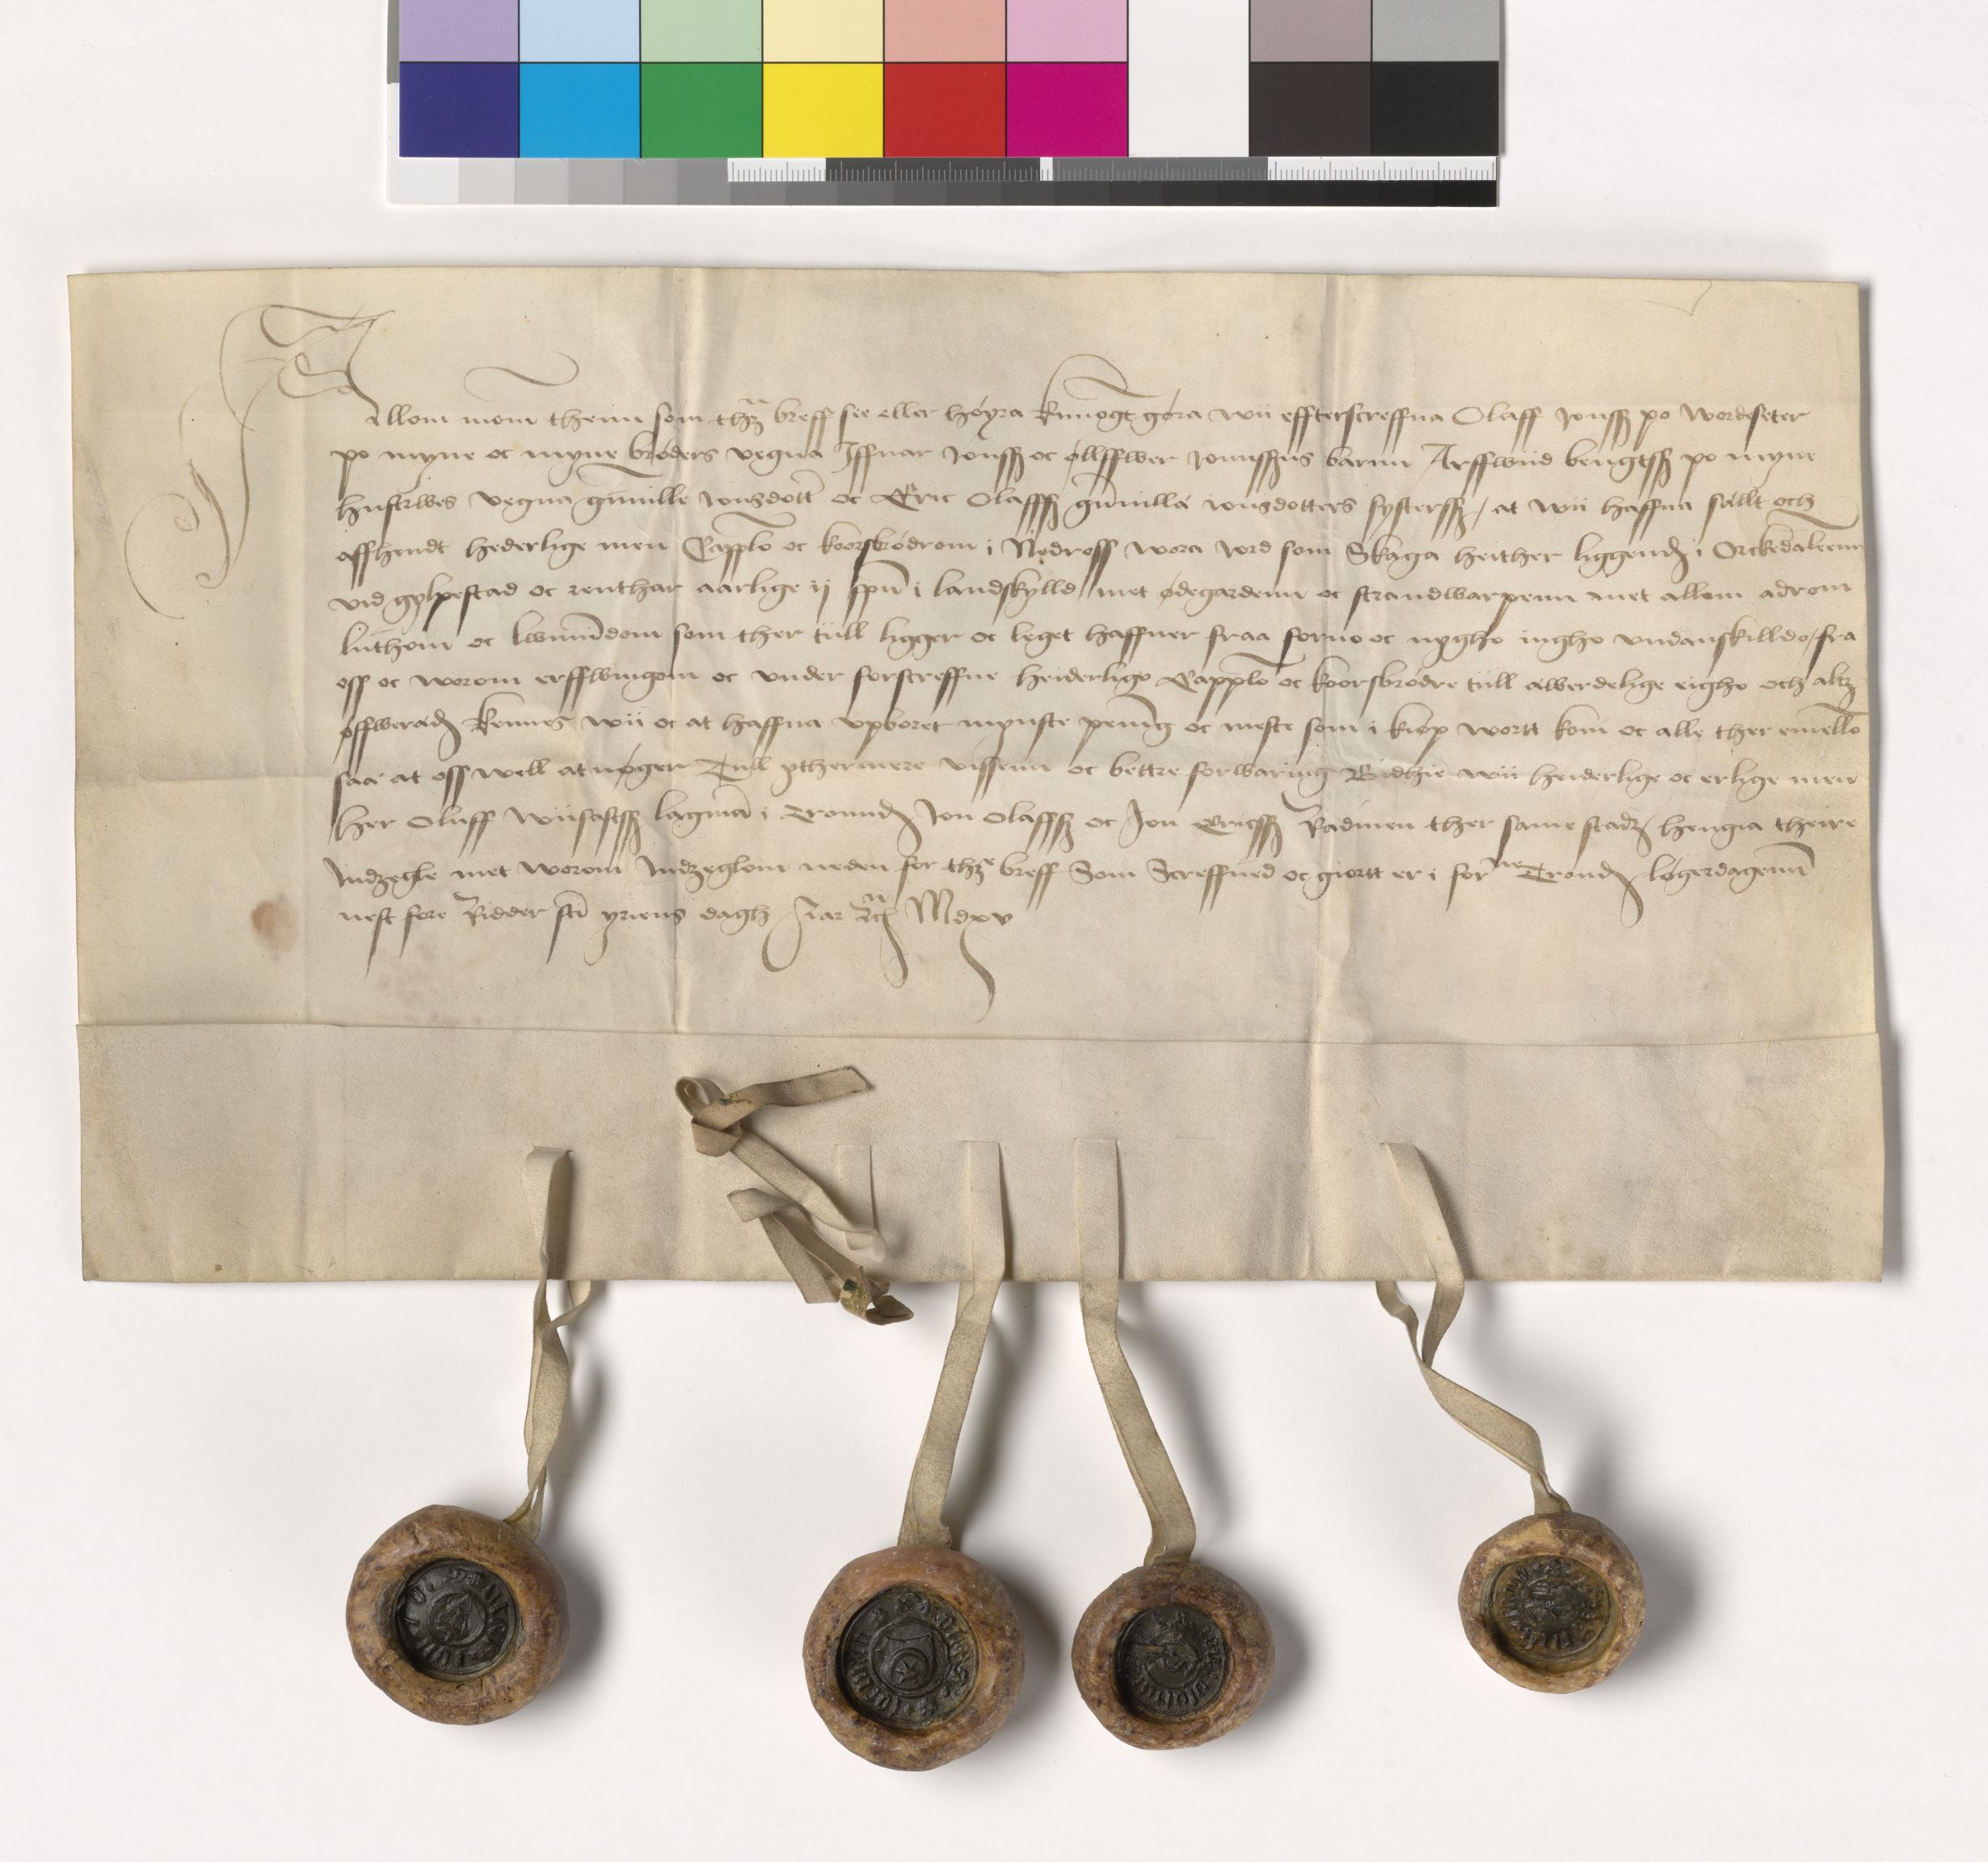 Allom mom̄ theim som thz̄ breff see eller høyra kunnogt gøra wii effterscreffna Olaff Jonssz po Wordeseter
po myne oc myne brøders vegna Iffuar Jonssz oc ollffwer Jonnszns barnn Arffwiid bengtssz po myne
hustrwes vegna gūnille Jonsdotte oc Eric Olaffssz gūnilla Jonsdotters systerssz / at wii haffua sállt och
affhendt hederlige men Capplo oc koorsbrødrom i Nędross wora jord som Skaga heither liggendz i Orckedaleenn
vid gylpestad oc renthar aarlige ij spūn i landskylld / met ødegardenn oc strandwarpenn met allom adrom
luthom oc lwnnīdom som ther till ligger oc leget haffuer fraa forno oc nygho ingho vndanskilldo / fra
oss oc worom erffwingom oc vnder forscreffne heiderligo Capplo oc koorsbrødre till æwerdelige eigho och altz
offweradz kennes wii oc at haffua vpboret mynste penīg oc meste som i kiøp wortt kom oc alle ther emello
saa at oss well atnøger Till ythermere vissenn oc bettre forwaring Bidhie wii heiderlige oc erlige men
her Oluff wiifastssz lagmā i Tronndz Jon Olaffssz oc Jon Ericssz Radmen ther same stadz / hengia theire
Indzegle met worom Indzeglom neden for thz̄ breff Som Screffued oc giortt er i forne Trondz løgerdagenn
nest fore Ridder sti yriens dagh Aar &c Mdxv